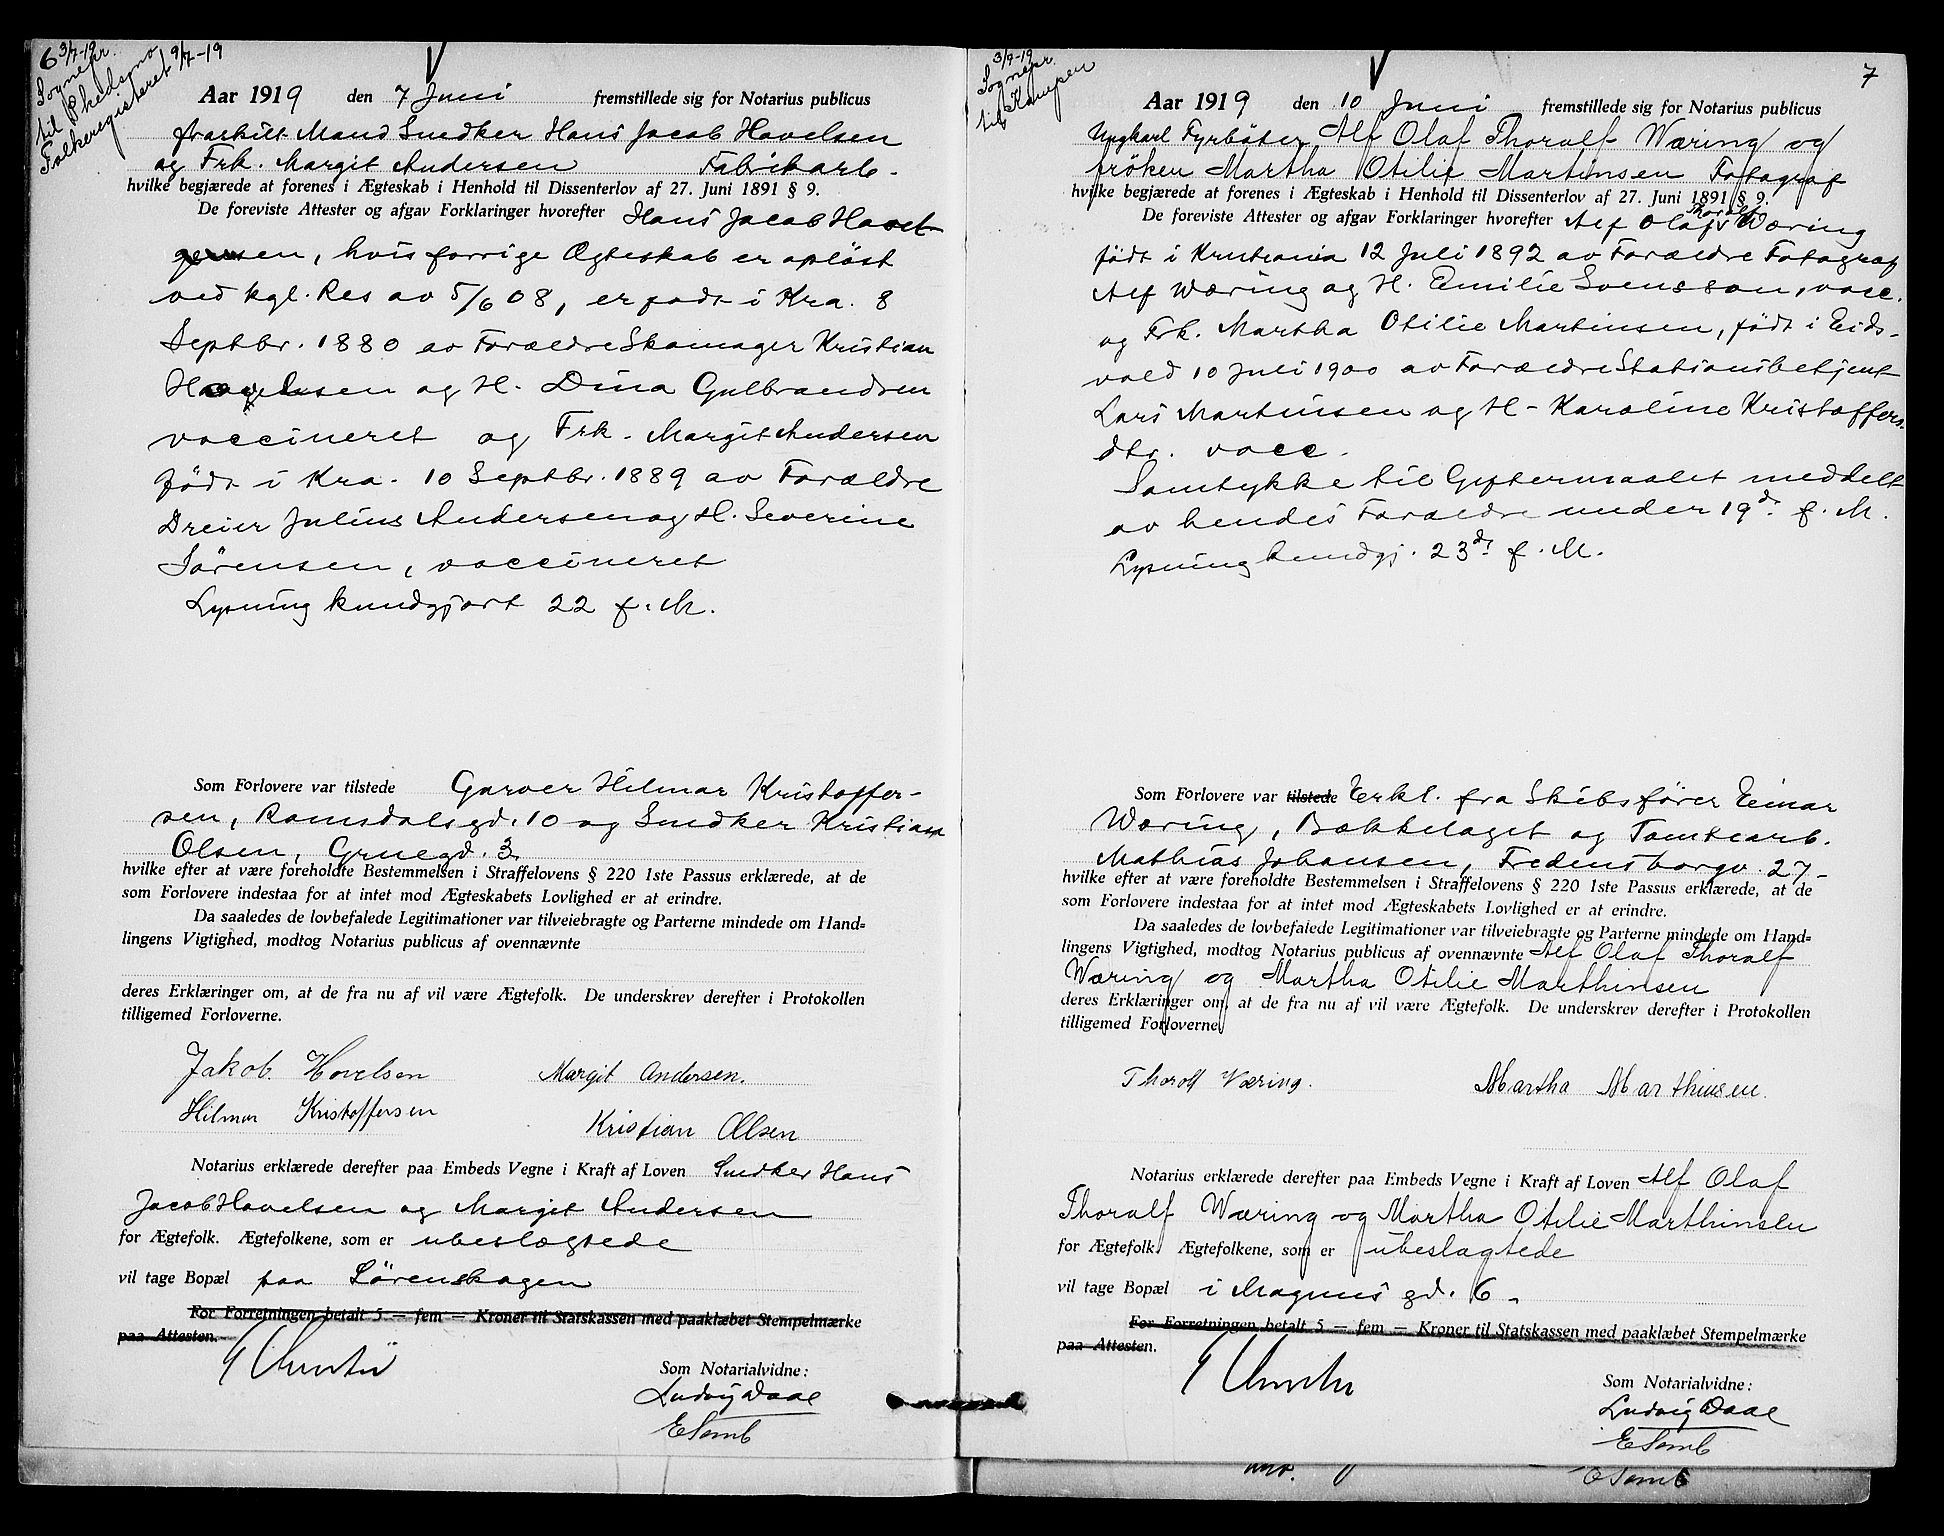 6 3/7-19
Sognepr.
til Skedsmo
Folkeregisteret 9/7-19
Aar 1919 den 7 Juni fremstillede sig for Notarius publicus
fraskilt Mand Snedker Hans Jacob Havelsen
og Frk. Margit Andersen Fabrikarb.
hvilke begjærede at forenes i Ægteskab i Henhold til Dissenterlov af 27. Juni 1891 § 9.
De foreviste Attester og afgav Forklaringer hvorefter Hans Jacob Havel-
sen, hvis forrige Ægteskab er opløst
ved kgl. Res av 5/6 08, er født i Kra. 8
Septbr. 1880 av Forældre Skomager Kristian
og H. Dina Gulbrandsen
vaccineret og Frk. Margit Andersen
født i Kra. 10 Septbr. 1889 av Forældre
Dreier Julius Andersen og H. Severine
Sørensen, vaccineret
Lysning kundgjort 22 f. M.
Som Forlovere var tilstede Garver Hilmar Kristoffer-
sen, Ramsdalsgd. 10 og Snedker Kristian
Olsen, Gruegd. 3
hvilke efter at være foreholdte Bestemmelsen i Straffelovens § 220 1ste Passus erklærede, at de
som Forlovere indestaa for at intet mod Ægteskabets Lovlighed er at erindre.
Da saaledes de lovbefalede Legitimationer var tilveiebragte og Parterne mindede om Hand-
lingens Vigtighed, modtog Notarius publicus af ovennævnte
deres Erklæringer om, at de fra nu af vil være Ægtefolk. De underskrev derefter i Protokollen
tilligemed Forloverne.
Jakob. Hovelsen Margit Andersen.
Hilmar Kristoffersen Kristian Olsen
Notarius erklærede derefter paa Embeds Vegne i Kraft af Loven Snedker Hans
Jacob Havelsen og Margit Andersen
for Ægtefolk. Ægtefolkene, som er ubeslægtede
vil tage Bopæl paa Lørenskogen
For Forretningen betalt 5 — fem — Kroner til Statskassen med paaklæbet Stempelmærke
paa Attesten.
Som Notarialvidne:
Ludvig Daae
E Somb
3/9-19
Sognepr.
til Kampen
7
Aar 1919 den 10 Juni fremstillede sig for Notarius publicus
Ungkarl Fyrbøter Alf Olaf Thoralf Wæring og
frøken Martha Otilie Martinsen Fotograf
hvilke begjærede at forenes i Ægteskab i Henhold til Dissenterlov af 27. Juni 1891 § 9.
De foreviste Attester og afgav Forklaringer hvorefter Alf Olaf Thoralf Wæring
født i Kristiania 12 Juli 1892 av Forældre Fotograf
Alf Wæring og H. Emilie Svensson, vacc.
og Frk. Martha Otilie Martinsen, født i Eids-
vold 10 Juli 1900 av Forældre Stationsbetjent
Lars Martinsen og H- Karoline Kristoffers-
dtr. vacc.
Samtykke til Giftermaalet meddelt
av hendes Forældre under 19d. f. M.
Lysning kundgj. 23d. f. M.
Som Forlovere var tilstede Erkl. fra Skibsfører Einar
Wæring, Bækkelaget og Tomtearb.
Mathias Johansen, Fredensborgv. 27-
hvilke efter at være foreholdte Bestemmelsen i Straffelovens § 220 1ste Passus erklærede, at de
som Forlovere indestaa for at intet mod Ægteskabets Lovlighed er at erindre.
Da saaledes de lovbefalede Legitimationer var tilveiebragte og Parterne mindede om Hand-
lingens Vigtighed, modtog Notarius publicus af ovennævnte Alf Olaf Thoralf
Wæring og Martha Otilie Marthinsen
deres Erklæringer om, at de fra nu af vil være Ægtefolk. De underskrev derefter i Protokollen
tilligemed Forloverne
Thorolf Wæring. Martha Marthinsen.
Notarius erklærede derefter paa Embeds Vegne i Kraft af Loven Alf Olaf
Thoralf Wæring og Martha Otilie Marthinsen
for Ægtefolk. Ægtefolkene, som er ubeslagtede
vil tage Bopæl i Magnus gd. 6.
For Forretningen betalt 5 — fem — Kroner til Statskassen med paaklæbet Stempelmærke
paa Attesten.
Som Notarialvidne:
Ludvig Daae
E Somb
E Somb